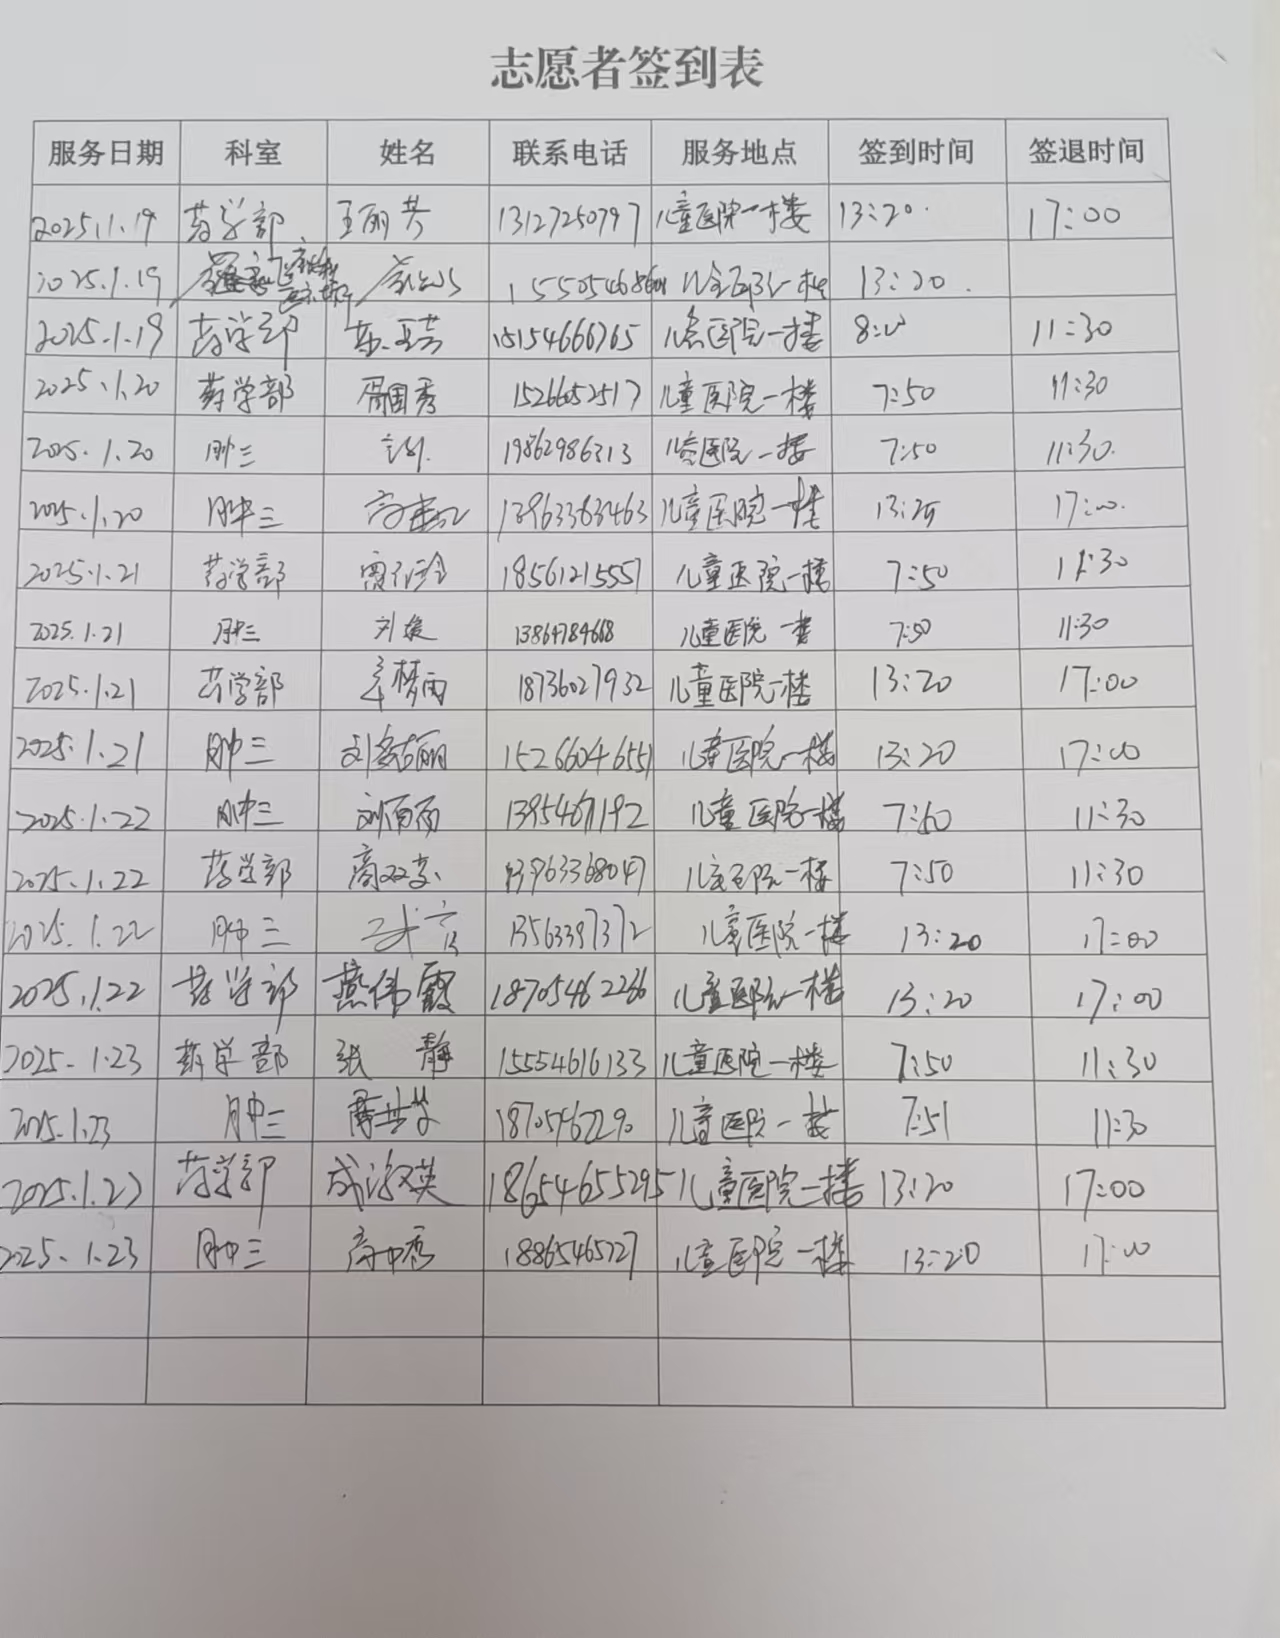 志愿者签到表
服务日期 科室 姓名 联系电话 服务地点 签到时间 签退时间
2025.1.19 药学部 王丽芳 13127250797 儿童医院一楼 13:20 17:00
2025.1.19 儿童医院一楼 13:20
2025.1.19 药学部 15154666765 儿童医院一楼 8:00 11:30
2025.1.20 药学部 胥国秀 15266052517 儿童医院一楼 7:50 11:30
2025.1.20 肿三 19862986313 儿童医院一楼 7:50 11:30
2025.1.20 肿三 13963363463 儿童医院一楼 13:25 17:00
2025.1.21 药学部 18561215557 儿童医院一楼 7:50 11:30
2025.1.21 肿三 刘媛 13864784668 儿童医院一楼 7:50 11:30
2025.1.21 药学部 辛梦雨 18736027932 儿童医院一楼 13:20 17:00
2025.1.21 肿三 15266046551 儿童医院一楼 13:20 17:00
2025.1.22 肿三 儿童医院一楼 7:50 11:30
2025.1.22 药学部 13963368047 儿童医院一楼 7:50 11:30
2025.1.22 肿三 13563397372 儿童医院一楼 13:20 17:00
2025.1.22 药学部 燕伟霞 18705462266 儿童医院一楼 13:20 17:00
2025.1.23 药学部 张静 15554616133 儿童医院一楼 7:50 11:30
2025.1.23 肿三 18705462290 儿童医院一楼 7:51 11:30
2025.1.23 药学部 成淑英 18654655295 儿童医院一楼 13:20 17:00
2025.1.23 肿三 18865465727 儿童医院一楼 13:20 17:00